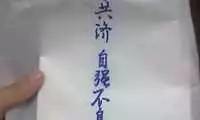 共济 自强不息